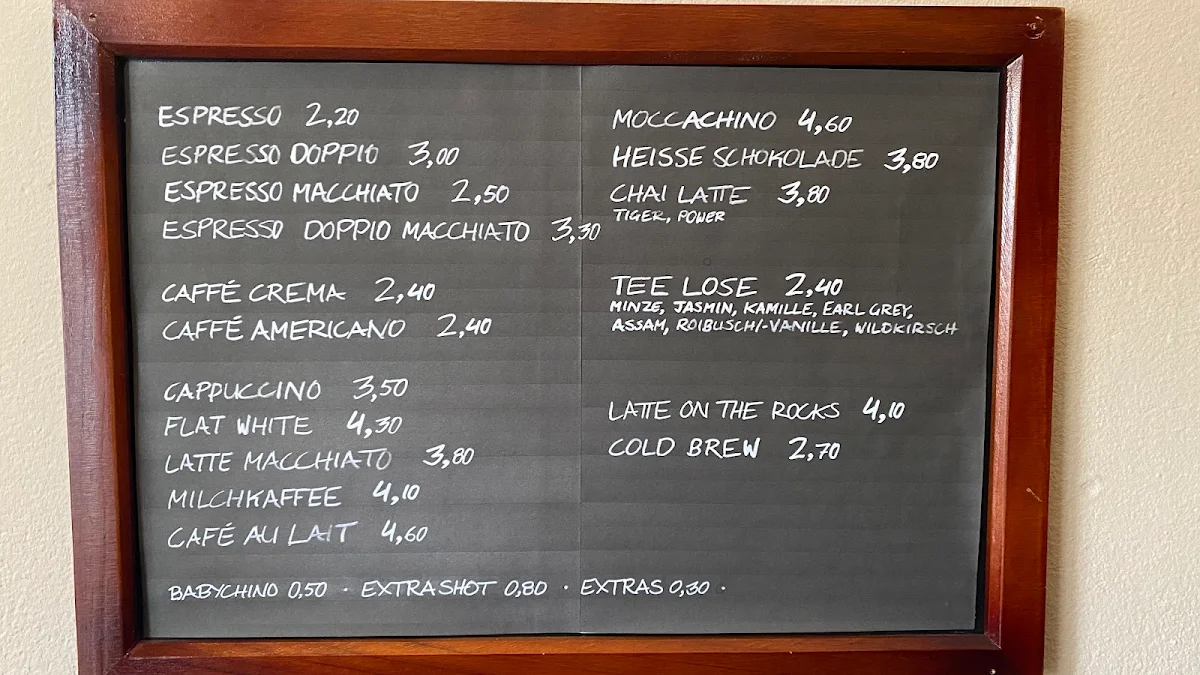 ESPRESSO 2,20
ESPRESSO DOPPIO 3,00
ESPRESSO MACCHIATO 2,50
ESPRESSO DOPPIO MACCHIATO 3,30
CAFFÉ CREMA 2,40
CAFFÉ AMERICANO 2,40
CAPPUCCINO 3,50
FLAT WHITE 4,30
LATTE MACCHIATO 3,80
MILCHKAFFEE 4,10
CAFÉ AU LAIT 4,60
MOCCACHINO 4,60
HEISSE SCHOKOLADE 3,80
CHAI LATTE 3,80
TIGER, POWER
TEE LOSE 2,40
MINZE, JASMIN, KAMILLE, EARL GREY,
ASSAM, ROIBUSCH-VANILLE, WILDKIRSCH
LATTE ON THE ROCKS 4,10
COLD BREW 2,70
BABYCHINO 0,50 · EXTRASHOT 0,80 · EXTRAS 0,30 ·